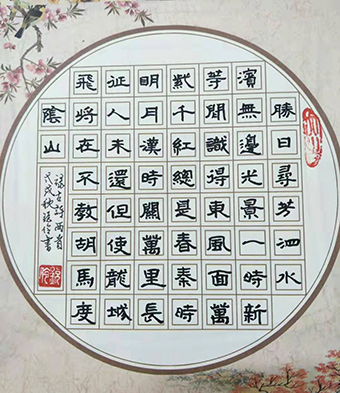 勝日尋芳泗水
濱無邊光景一時新
等閒識得東風面萬
紫千紅總是春秦時
明月漢時關萬里長
征人未還但使龍城
飛將在不教胡馬度
陰山
錄古詩兩首
戊戌秋書